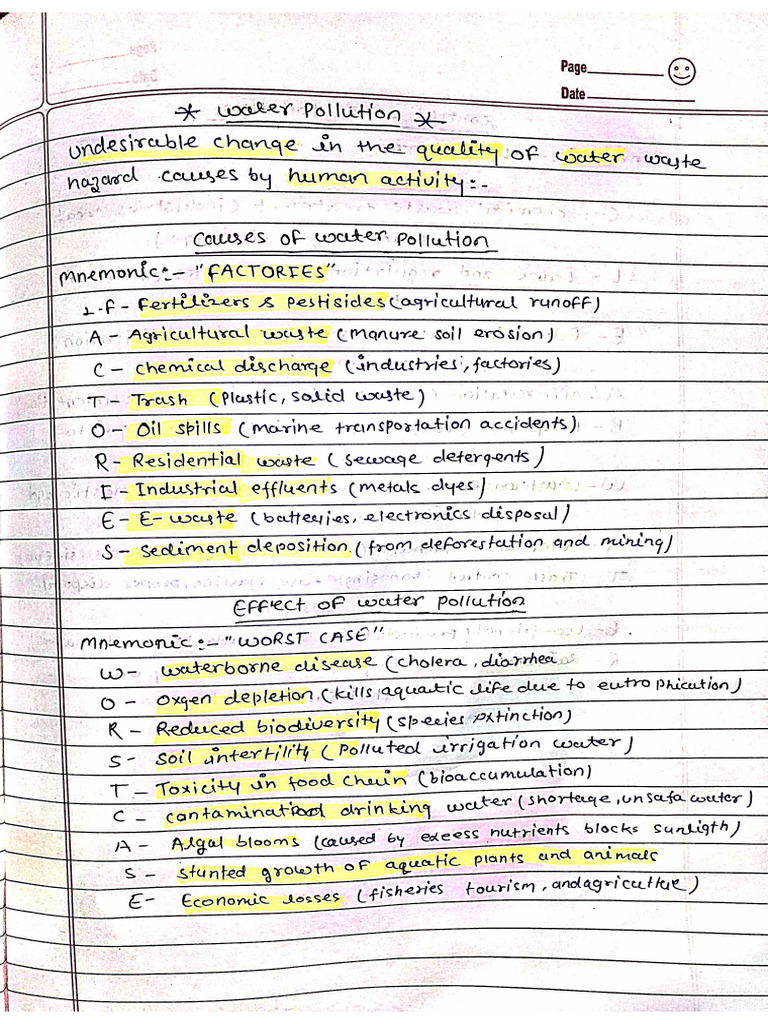 Page
Date
* Water Pollution *
undesirable change in the quality of water waste
hazard causes by human activity:-
Causes of water pollution
Mnemonic:- "FACTORIES"
1. F - Fertilizers & Pestisides (agricultural runoff)
A - Agricultural waste (manure soil erosion)
C - chemical discharge (industries, factories)
T - Trash (plastic, solid waste)
O - Oil spills (marine transportation accidents)
R - Residential waste (sewage detergents)
I - Industrial effluents (metals dyes)
E - E-waste (batteries, electronics disposal)
S - Sediment deposition (from deforestation and mining)
Effect of water pollution
Mnemonic:- "WORST CASE"
W - waterborne disease (cholera, diarrhea
O - Oxgen depletion (kills aquatic life due to eutrophication)
R - Reduced biodiversity (species extinction)
S - Soil intertility (Polluted irrigation water)
T - Toxicity in food chain (bioaccumulation)
C - drinking water (shortage, unsafa water)
A - Algal blooms (caused by excess nutrients blocks sunligth)
S - stunted growth of aquatic plants and animals
E - Economic losses (fisheries tourism, and